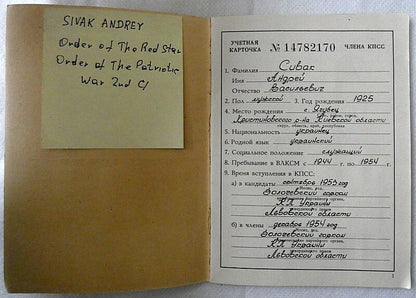 SIVAK ANDREY
Order of The Red Star
Order of The Patriotic
War 2nd Cl
УЧЕТНАЯ КАРТОЧКА № 14782170 ЧЛЕНА КПСС
1. Фамилия Сивак
Имя Андрей
Отчество Васильевич
2. Пол мужской 3. Год рождения 1925
4. Место рождения с.
Христиновского р-на Киевской области
5. Национальность украинец
6. Родной язык украинский
7. Социальное положение служащий
8. Пребывание в ВЛКСМ с 1944 г. по 1954 г.
9. Время вступления в КПСС:
а) в кандидаты сентябрь 1953 год
Золочевский горком
КП Украины
Львовской области
б) в члены декабрь 1954 год
Золочевский горком
КП Украины
Львовской области
1